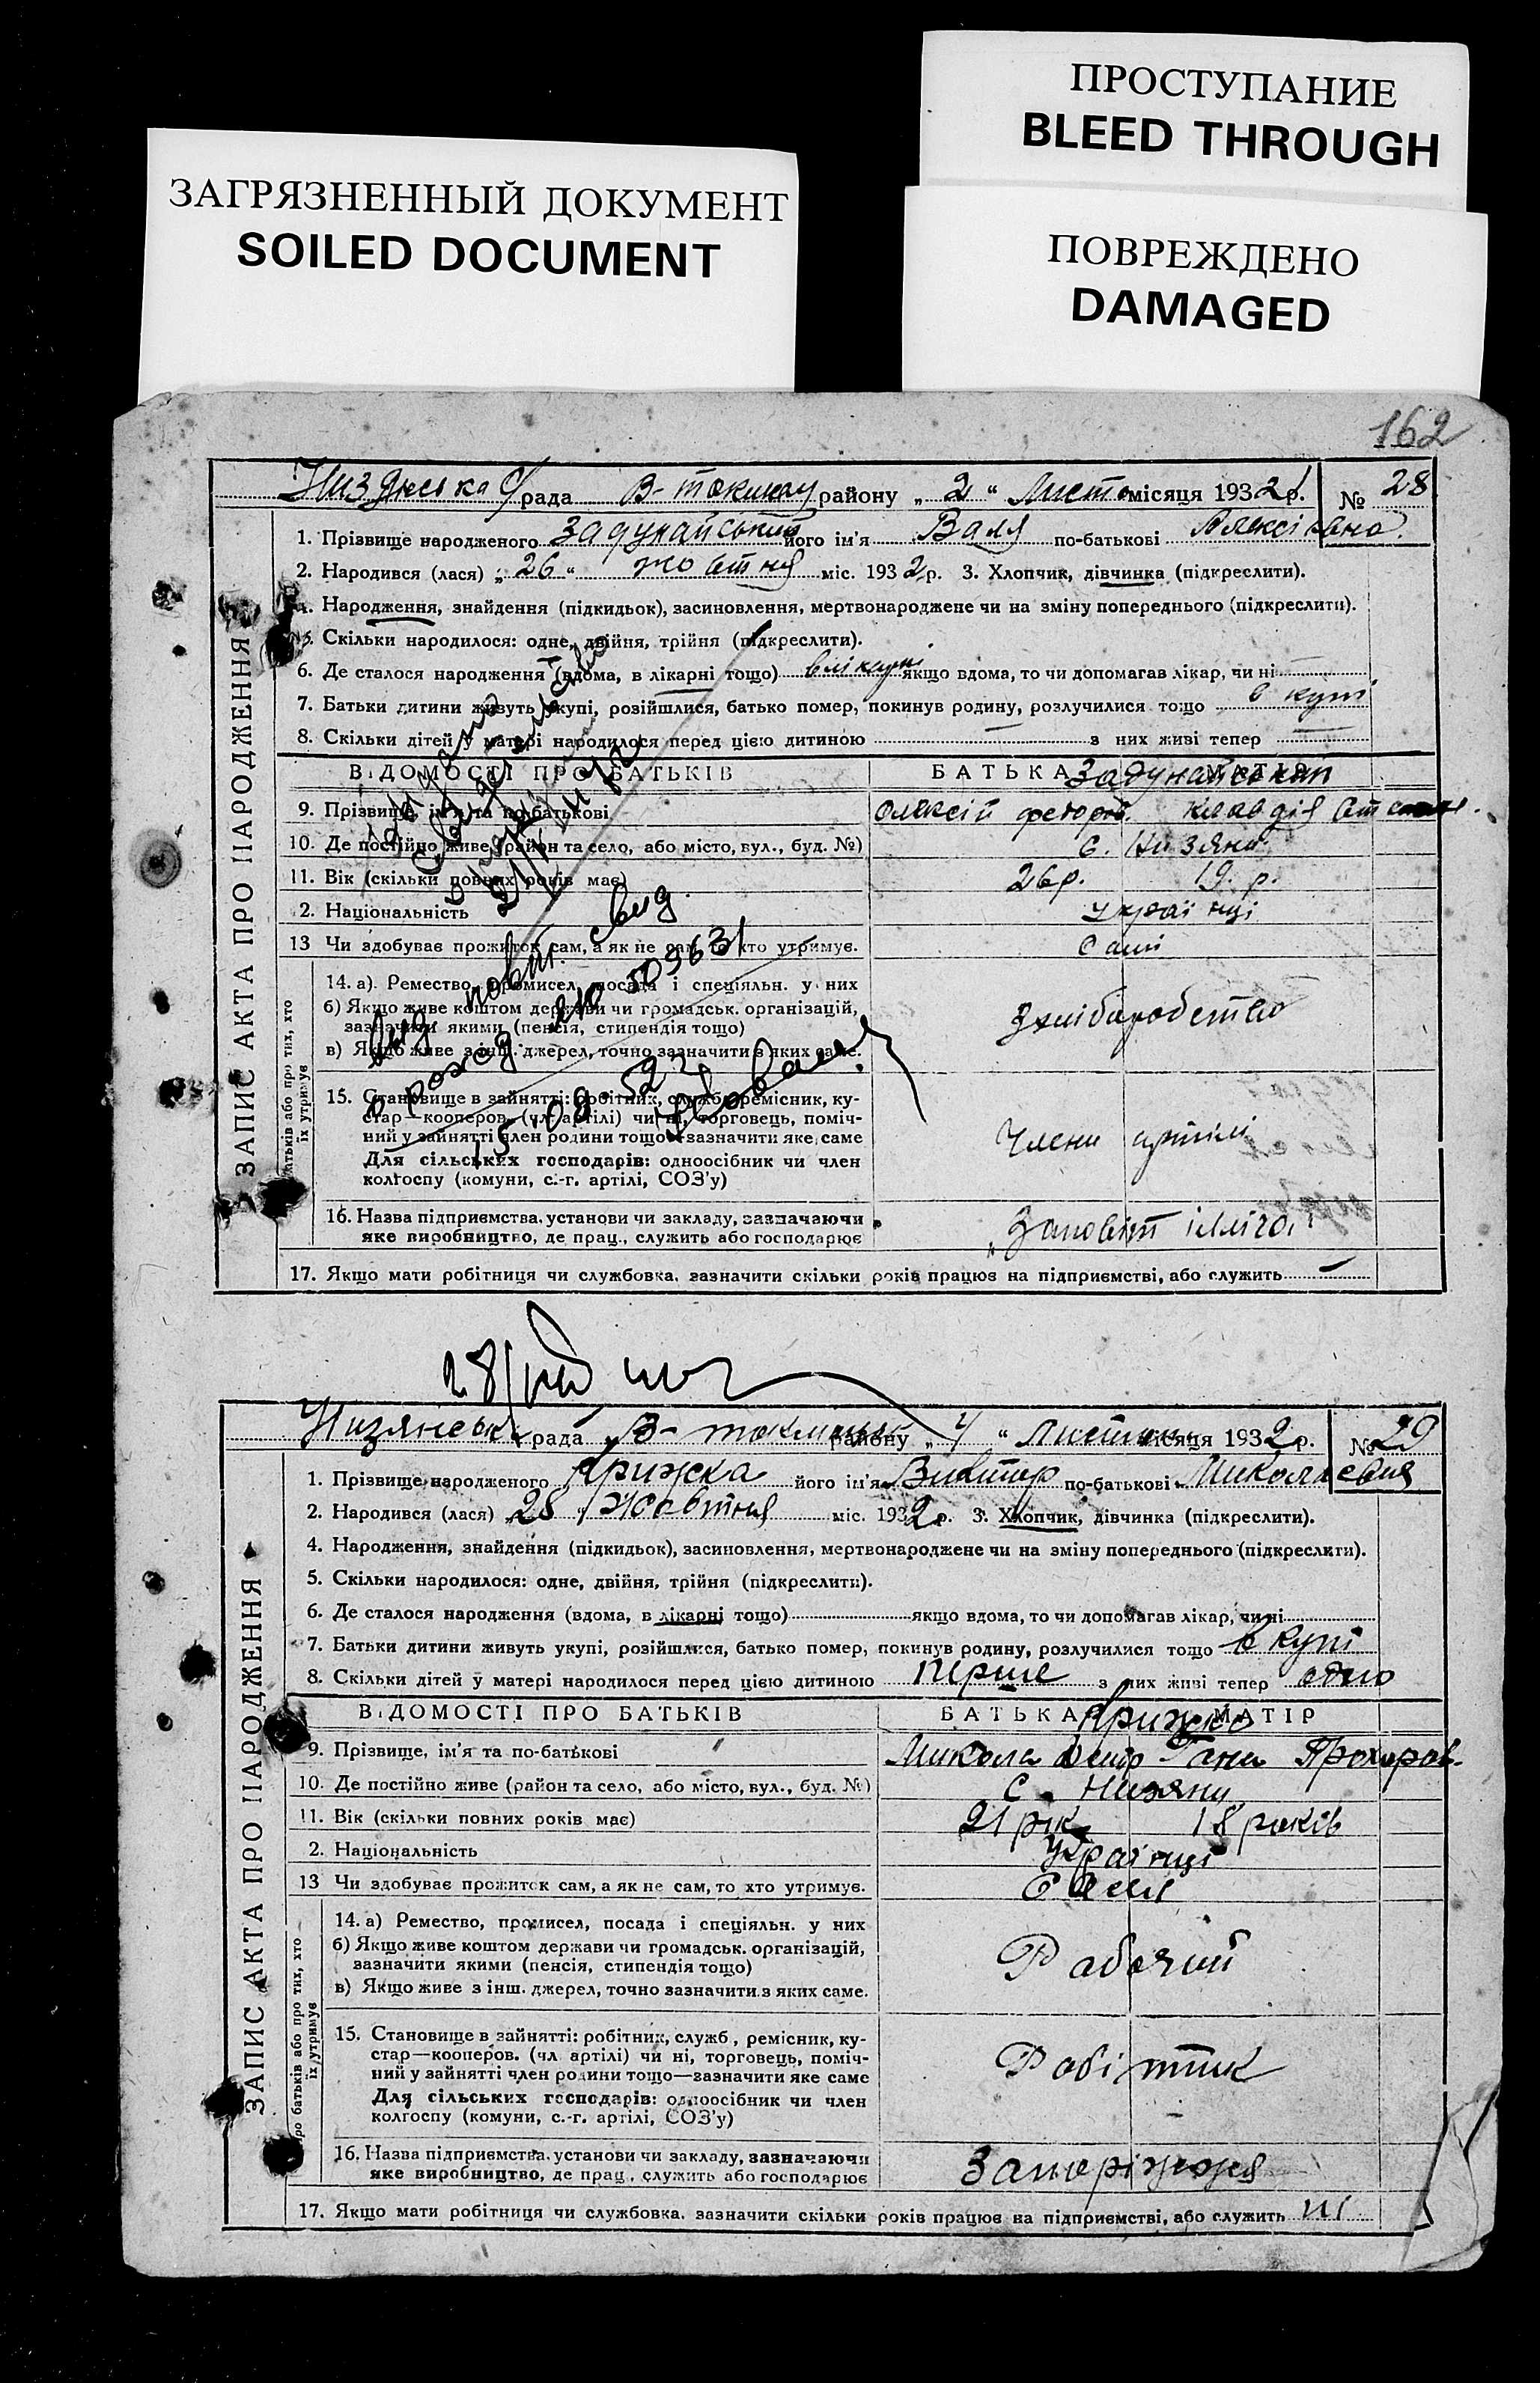 ПРОСТУПАНИЕ
BLEED THROUGH
ЗАГРЯЗНЕННЫЙ ДОКУМЕНТ
SOILED DOCUMENT
ПОВРЕЖДЕНО
DAMAGED
162
ЗАПИС АКТА ПРО НАРОДЖЕННЯ
рада В- токмач району „ 2 “ Листо місяця 1932 р. № 28
1. Прізвище народженого Задунайський його ім'я Валя по-батькові
2. Народився (лася) „ 26 “ жовтня міс. 1932 р. 3. Хлопчик, дівчинка (підкреслити).
4. Народження, знайдення (підкидьок), засиновлення, мертвонароджене чи на зміну попереднього (підкреслити).
5. Скільки народилося: одне, двійня, трійня (підкреслити).
6. Де сталося народження (вдома, в лікарні тощо) в лікарні якщо вдома, то чи допомагав лікар, чи ні
7. Батьки дитини живуть укупі, розійшлися, батько помер, покинув родину, розлучилися тощо в купі
8. Скільки дітей у матері народилося перед цією дитиною — з них живі тепер —
ВІДОМОСТІ ПРО БАТЬКІВ БАТЬКА МАТІР
Задунайський
9. Прізвище, ім'я та по-батькові Олексій федоров. клавдія
10. Де постійно живе (район та село, або місто, вул., буд. №) с. Низяни
11. Вік (скільки повних років має) 26 р. 19. р.
2. Національність українці
13 Чи здобуває прожиток сам, а як не сам, то хто утримує. Самі
батьків або про тих, хто їх утримує
14. а). Ремество, промисел, посада і спеціяльн. у них
б) Якщо живе коштом держави чи громадськ. організацій,
зазначити якими (пенсія, стипендія тощо)
в) Якщо живе з інш. джерел, точно зазначити з яких саме.
Хліборобство
15. Становище в зайнятті: робітник, служб., ремісник, ку-
стар—кооперов. (чл. артілі) чи ні, торговець, поміч-
ний у зайнятті член родини тощо—зазначити яке саме
Для сільських господарів: одноосібник чи член
колгоспу (комуни, с.-г. артілі, СОЗ'у)
Члени артілі
16. Назва підприємства, установи чи закладу, зазначаючи
яке виробництво, де прац., служить або господарює
„Заповіт Ілліча“
17. Якщо мати робітниця чи службовка, зазначити скільки років працює на підприємстві, або служить —
Выд повт. свид.
о рожд 509631
15.08.52 г
28/
ЗАПИС АКТА ПРО НАРОДЖЕННЯ
Низянська рада В- токмацьк району „ 4 “ Листоп місяця 1932 р. № 29
1. Прізвище народженого Крижка його ім'я Виктор по-батькові Миколаєвич
2. Народився (лася) „ 28 “ Жовтня міс. 1932 р. 3. Хлопчик, дівчинка (підкреслити).
4. Народження, знайдення (підкидьок), засиновлення, мертвонароджене чи на зміну попереднього (підкреслити).
5. Скільки народилося: одне, двійня, трійня (підкреслити).
6. Де сталося народження (вдома, в лікарні тощо) якщо вдома, то чи допомагав лікар, чи ні
7. Батьки дитини живуть укупі, розійшлися, батько помер, покинув родину, розлучилися тощо в купі
8. Скільки дітей у матері народилося перед цією дитиною перше з них живі тепер одно
ВІДОМОСТІ ПРО БАТЬКІВ БАТЬКА МАТІР
Крижка
9. Прізвище, ім'я та по-батькові Микола Дмітр Гана Прохоров.
10. Де постійно живе (район та село, або місто, вул., буд. №) с. Низяни
11. Вік (скільки повних років має) 21 рік 18 років
2. Національність Українці
13 Чи здобуває прожиток сам, а як не сам, то хто утримує. Самі
про батьків або про тих, хто їх утримує
14. а) Ремество, промисел, посада і спеціяльн. у них
б) Якщо живе коштом держави чи громадськ. організацій,
зазначити якими (пенсія, стипендія тощо)
в) Якщо живе з інш. джерел, точно зазначити з яких саме.
Рабочий
15. Становище в зайнятті: робітник, служб., ремісник, ку-
стар—кооперов. (чл. артілі) чи ні, торговець, поміч-
ний у зайнятті член родини тощо—зазначити яке саме
Для сільських господарів: одноосібник чи член
колгоспу (комуни, с.-г. артілі, СОЗ'у)
Робітник
16. Назва підприємства, установи чи закладу, зазначаючи
яке виробництво, де прац., служить або господарює
Запоріжжя
17. Якщо мати робітниця чи службовка, зазначити скільки років працює на підприємстві, або служить ні